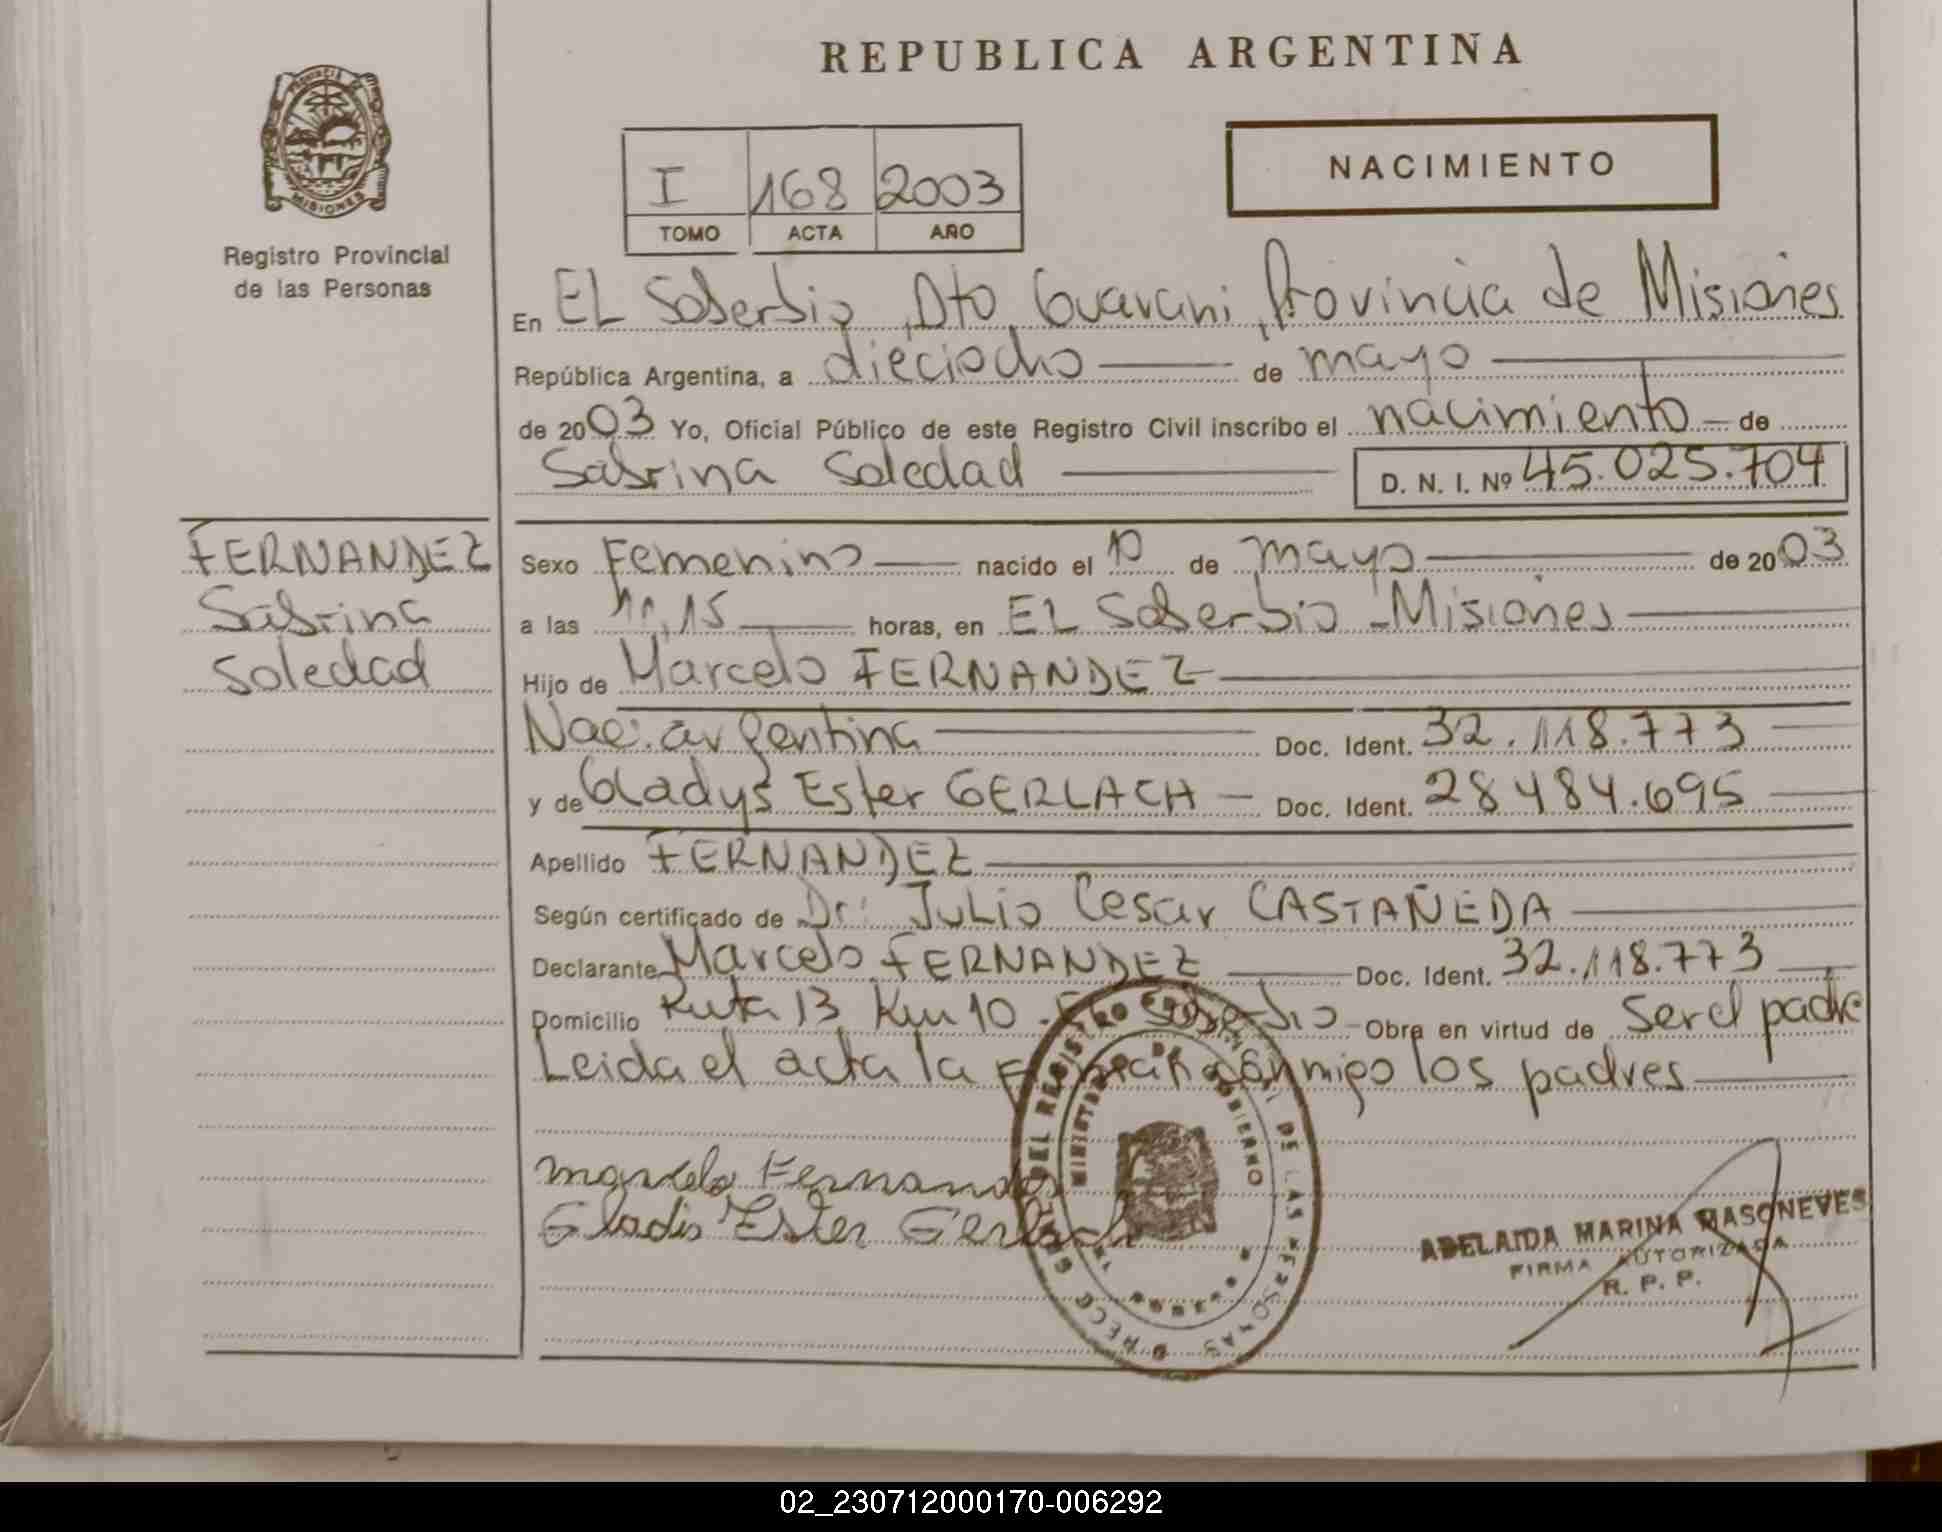 REPUBLICA ARGENTINA
PROVINCIA DE
MISIONES
Registro Provincial
de las Personas
I 168 2003
TOMO ACTA AÑO
NACIMIENTO
En EL Soberbio, Dto Guarani, Provincia de Misiones
República Argentina, a dieciocho de mayo
de 2003 Yo, Oficial Público de este Registro Civil inscribo el nacimiento de
Sabrina Soledad D. N. I. Nº 45.025.704
FERNANDEZ
Sabrina
Soledad
Sexo Femenino nacido el 10 de mayo de 2003
a las 11,15 horas, en EL Soberbio - Misiones
Hijo de Marcelo FERNANDEZ
Nac. argentina Doc. Ident. 32.118.773
y de Gladys Ester GERLACH Doc. Ident. 28484.695
Apellido FERNANDEZ
Según certificado de Dr. JuLio Cesar CASTAÑEDA
Declarante Marcelo FERNANDEZ Doc. Ident. 32.118.773
Domicilio Ruta 13 Km 10 - El Soberbio Obra en virtud de ser el padre
Leida el acta la firman conmigo los padres
Marcelo Fernandez
Gladis Ester Gerlach
DEL REGISTRO DE LAS PERSONAS
MINISTERIO DE GOBIERNO
ADELAIDA MARINA MASONEVES
FIRMA AUTORIZADA
R. P. P.
02_230712000170-006292